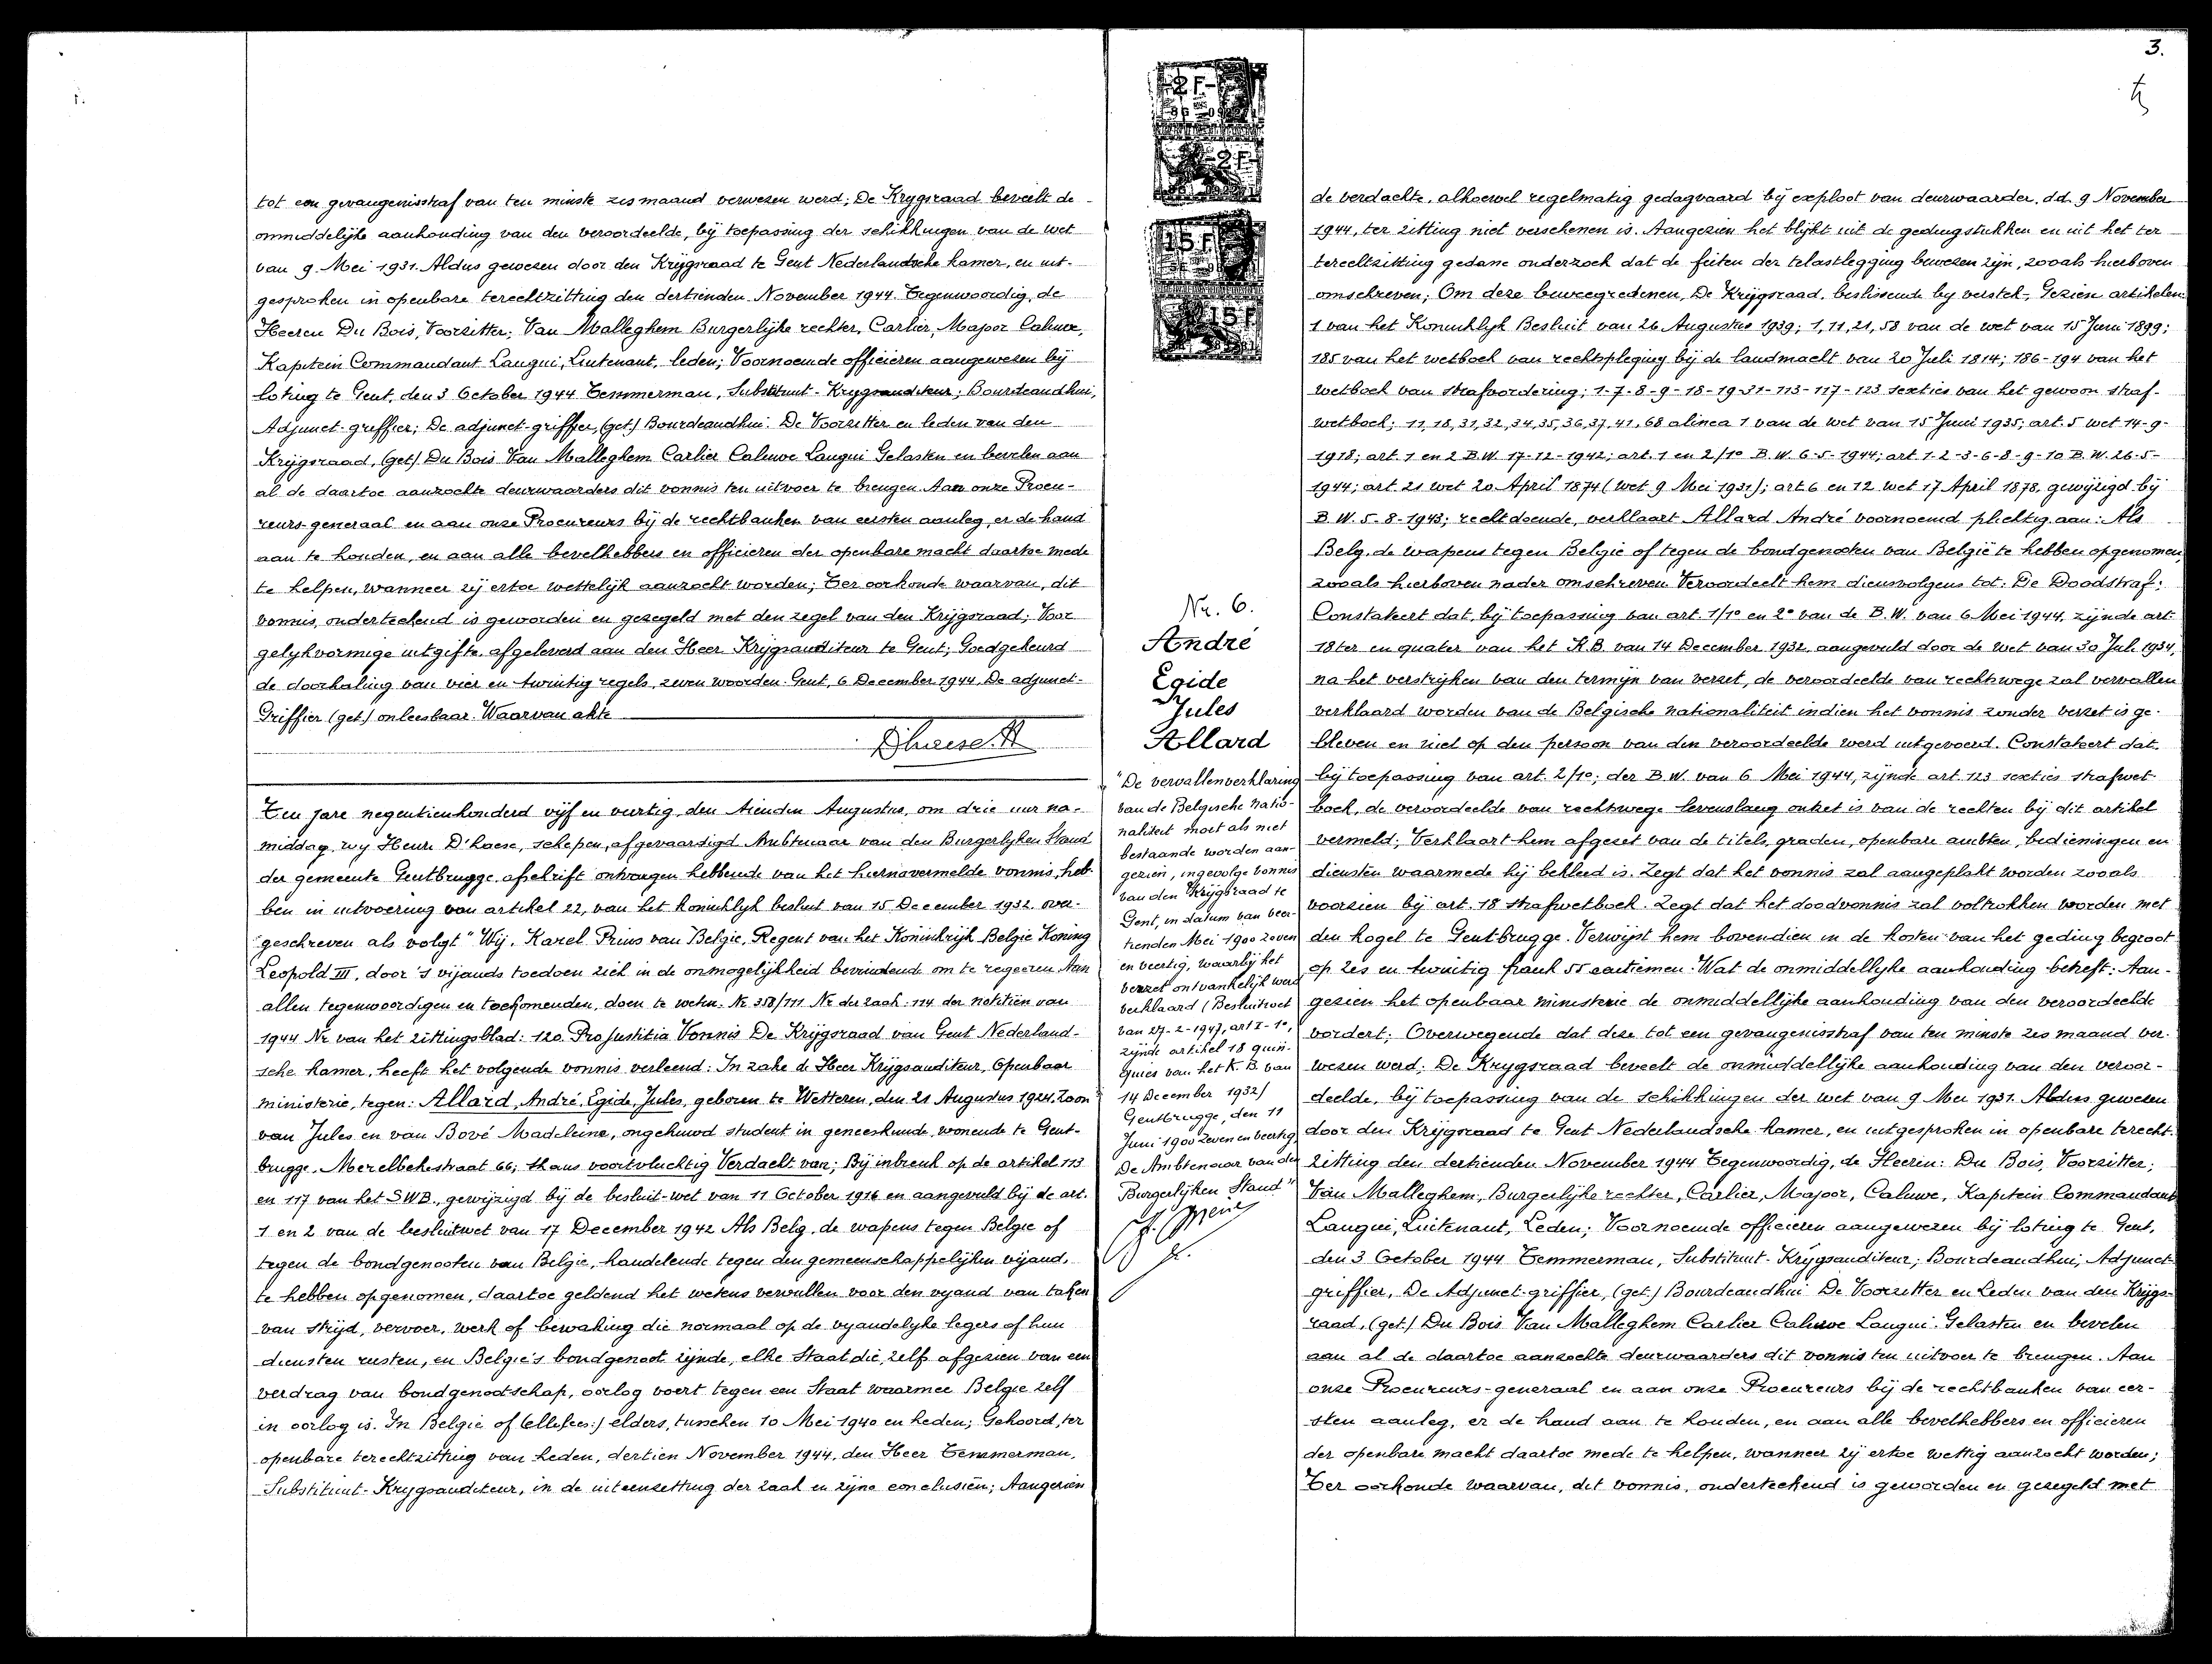 tot een gevangenisstraf van ten minste zes maand verwezen werd; De Krygsraad beveelt de
onmiddelijke aanhouding van den veroordeelde, bij toepassing der schikkingen van de wet
van 9 Mei 1931. Aldus gewezen door den Krijgsraad te Gent Nederlandsche kamer, en uit-
gesproken in openbare terechtzitting den dertienden November 1944. Tegenwoordig, de
Heeren Du Bois, Voorzitter; Van Malleghem Burgerlijke rechter, Carlier, Majoor Caluwe,
Kapitein Commandant Laugui, Luitenant, leden; Voornoemde officieren aangewezen bij
loting te Gent, den 3 October 1944 Temmerman, Substituut-Krygsauditeur; Bourdeaudhui,
Adjunct-griffier; De adjunct-griffier, (get.) Bourdeaudhui. De Voorzitter en leden van den
Krijgsraad, (get.) Du Bois Van Malleghem Carlier Caluwe Laugui Gelasten en bevelen aan
al de daartoe aanzochte deurwaarders dit vonnis ten uitvoer te brengen. Aan onze Procu-
reurs-generaal en aan onze Procureurs bij de rechtbanken van eersten aanleg, er de hand
aan te houden, en aan alle bevelhebbers en officieren der openbare macht daartoe mede
te helpen, wanneer zij ertoe wettelijk aanzocht worden; Ter oorkonde waarvan, dit
vonnis, onderteekend is geworden en gezegeld met den zegel van den Krijgsraad; Voor
gelykvormige uitgifte, afgeleverd aan den Heer Krijgsauditeur te Gent; Goedgekeurd
de doorhaling van vier en twintig regels, zeven woorden. Gent, 6 December 1944. De adjunct-
Griffier (get.) onleesbaar. Waarvan akte
Dhaese H
Ten jare negentienhonderd vijf en veertig, den tienden Augustus, om drie uur na-
middag, wy Henri D'haese, schepen, afgevaardigd Ambtenaar van den Burgerlyken Stand
der gemeente Gentbrugge, afschrift ontvangen hebbende van het hiernavermelde vonnis, heb-
ben in uitvoering van artikel 22, van het koninklyk besluit van 15 December 1932 over-
geschreven als volgt "Wij, Karel Prins van België, Regent van het Koninkrijk België Koning
Leopold III, door 's vijands toedoen zich in de onmogelijkheid bevindende om te regeeren Aan
allen tegenwoordigen en toekomenden, doen te weten. Nr. 358/111 Nr der zaak: 114 der notitiën van
1944 Nr van het zittingsblad: 120. Pro Justitia Vonnis De Krijgsraad van Gent Nederland-
sche kamer, heeft het volgende vonnis verleend: In zake de Heer Krijgsauditeur, Openbaar
ministerie, tegen: Allard, André, Egide, Jules, geboren te Wetteren, den 21 Augustus 1924, Zoon
van Jules en van Bové Madeleine, ongehuwd student in geneeskunde, wonende te Gent-
brugge, Merelbekestraat 66; thans voortvluchtig Verdacht van; Bij inbreuk op de artikel 113
en 117 van het S.W.B., gewijzigd bij de besluit-wet van 11 October 1916 en aangevuld bij de art.
1 en 2 van de besluitwet van 17 December 1942 Als Belg, de wapens tegen België of
tegen de bondgenooten van België, handelende tegen den gemeenschappelijken vijand,
te hebben opgenomen, daartoe geldend het wetens vervullen voor den vyand van taken
van strijd, vervoer, werk of bewaking die normaal op de vyandelyke legers of hun
diensten rusten, en België's bondgenoot zijnde, elke Staat die, zelf afgezien van een
verdrag van bondgenootschap, oorlog voert tegen een Staat waarmee België zelf
in oorlog is. In België of elders, tusschen 10 Mei 1940 en heden; Gehoord, ter
openbare terechtzitting van heden, dertien November 1944, den Heer Temmerman,
Substituut-Krygsauditeur, in de uiteenzetting der zaak en zijne conclusiën; Aangezien
2F
2F
15F
15F
Nr. 6.
André
Egide
Jules
Allard
"De vervallenverklaring
van de Belgische natio-
naliteit moet als niet
bestaande worden aan-
gezien, ingevolge vonnis
van den Krijgsraad te
Gent, in datum van veer-
tienden Mei 1900 zeven
en veertig, waarbij het
verzet ontvankelijk werd
verklaard (Besluitwet
van 27-2-1947, art I-1°,
zijnde artikel 18 quin-
quies van het K.B. van
14 December 1932)
Gentbrugge, den 11
Juni 1900 zeven en veertig
De Ambtenaar van den
Burgerlijken Stand"
3.
de verdachte, alhoewel regelmatig gedagvaard bij exploot van deurwaarder, dd. 9 November
1944, ter zitting niet verschenen is. Aangezien het blijkt uit de gedingstukken en uit het ter
terechtzitting gedane onderzoek dat de feiten der telastlegging bewezen zijn, zooals hierboven
omschreven; Om deze beweegredenen, De Krijgsraad, beslissende by verstek, Gezien artikelen
1 van het Koninklyk Besluit van 26 Augustus 1939; 1, 11, 21, 58 van de wet van 15 Juni 1899;
185 van het wetboek van rechtspleging bij de landmacht van 20 Juli 1814; 186-194 van het
wetboek van strafvordering; 1-7-8-9-18-19-31-113-117-123 sexties van het gewoon straf-
wetboek; 11, 18, 31, 32, 34, 35, 36, 37, 41, 68 alinea 1 van de wet van 15 Juni 1935; art. 5 wet 14-9-
1918; art. 1 en 2 B.W. 17-12-1942; art. 1 en 2/1° B.W. 6-5-1944; art 1-2-3-6-8-9-10 B.W. 26-5-
1944; art. 21 wet 20 April 1874 (wet 9 Mei 1931); art. 6 en 12 wet 17 April 1878, gewijzigd bij
B.W. 5-8-1943; recht doende, verklaart Allard André voornoemd plichtig aan: Als
Belg, de wapens tegen België of tegen de bondgenooten van België te hebben opgenomen,
zooals hierboven nader omschreven Veroordeelt hem dienvolgens tot: De Doodstraf;
Constateert dat, bij toepassing van art. 1/1° en 2° van de B.W. van 6 Mei 1944, zijnde art.
18ter en quater van het K.B. van 14 December 1932, aangevuld door de wet van 30 Juli 1934,
na het verstrijken van den termijn van verzet, de veroordeelde van rechtswege zal vervallen
verklaard worden van de Belgische nationaliteit indien het vonnis zonder verzet is ge-
bleven en niet op den persoon van den veroordeelde werd uitgevoerd. Constateert dat,
bij toepassing van art. 2/1°; der B.W. van 6 Mei 1944, zijnde art. 123 sexties strafwet-
boek, de veroordeelde van rechtswege levenslang ontzet is van de rechten bij dit artikel
vermeld; Verklaart hem afgezet van de titels, graden, openbare ambten, bedieningen en
diensten waarmede hij bekleed is. Zegt dat het vonnis zal aangeplakt worden zooals
voorzien bij art. 18 strafwetboek. Zegt dat het doodvonnis zal voltrokken worden met
den kogel te Gentbrugge. Verwijst hem bovendien in de kosten van het geding begroot
op zes en twintig frank 55 centiemen. Wat de onmiddellyke aanhouding betreft: Aan-
gezien het openbaar ministerie de onmiddellijke aanhouding van den veroordeelde
vordert; Overwegende dat deze tot een gevangenisstraf van ten minste zes maand ver-
wezen werd; De Krygsraad beveelt de onmiddellijke aanhouding van den veroor-
deelde, bij toepassing van de schikkingen der wet van 9 Mei 1931. Aldus gewezen
door den Krijgsraad te Gent Nederlandsche kamer, en uitgesproken in openbare terecht-
zitting den dertienden November 1944 Tegenwoordig, de Heeren: Du Bois, Voorzitter;
Van Malleghem, Burgerlijke rechter, Carlier, Majoor, Caluwe, Kapitein Commandant
Laugui, Luitenant, Leden; Voornoemde officieren aangewezen bij loting te Gent,
den 3 October 1944 Temmerman, Substituut-Krijgsauditeur; Bourdeaudhui, Adjunct-
griffier, De Adjunct-griffier, (get.) Bourdeaudhui De Voorzitter en Leden van den Krijgs-
raad, (get.) Du Bois Van Malleghem Carlier Caluwe Laugui. Gelasten en bevelen
aan al de daartoe aanzochte deurwaarders dit vonnis ten uitvoer te brengen. Aan
onze Procureurs-generaal en aan onze Procureurs bij de rechtbanken van eer-
sten aanleg, er de hand aan te houden, en aan alle bevelhebbers en officieren
der openbare macht daartoe mede te helpen, wanneer zij ertoe wettig aanzocht worden;
Ter oorkonde waarvan, dit vonnis, onderteekend is geworden en gezegeld met